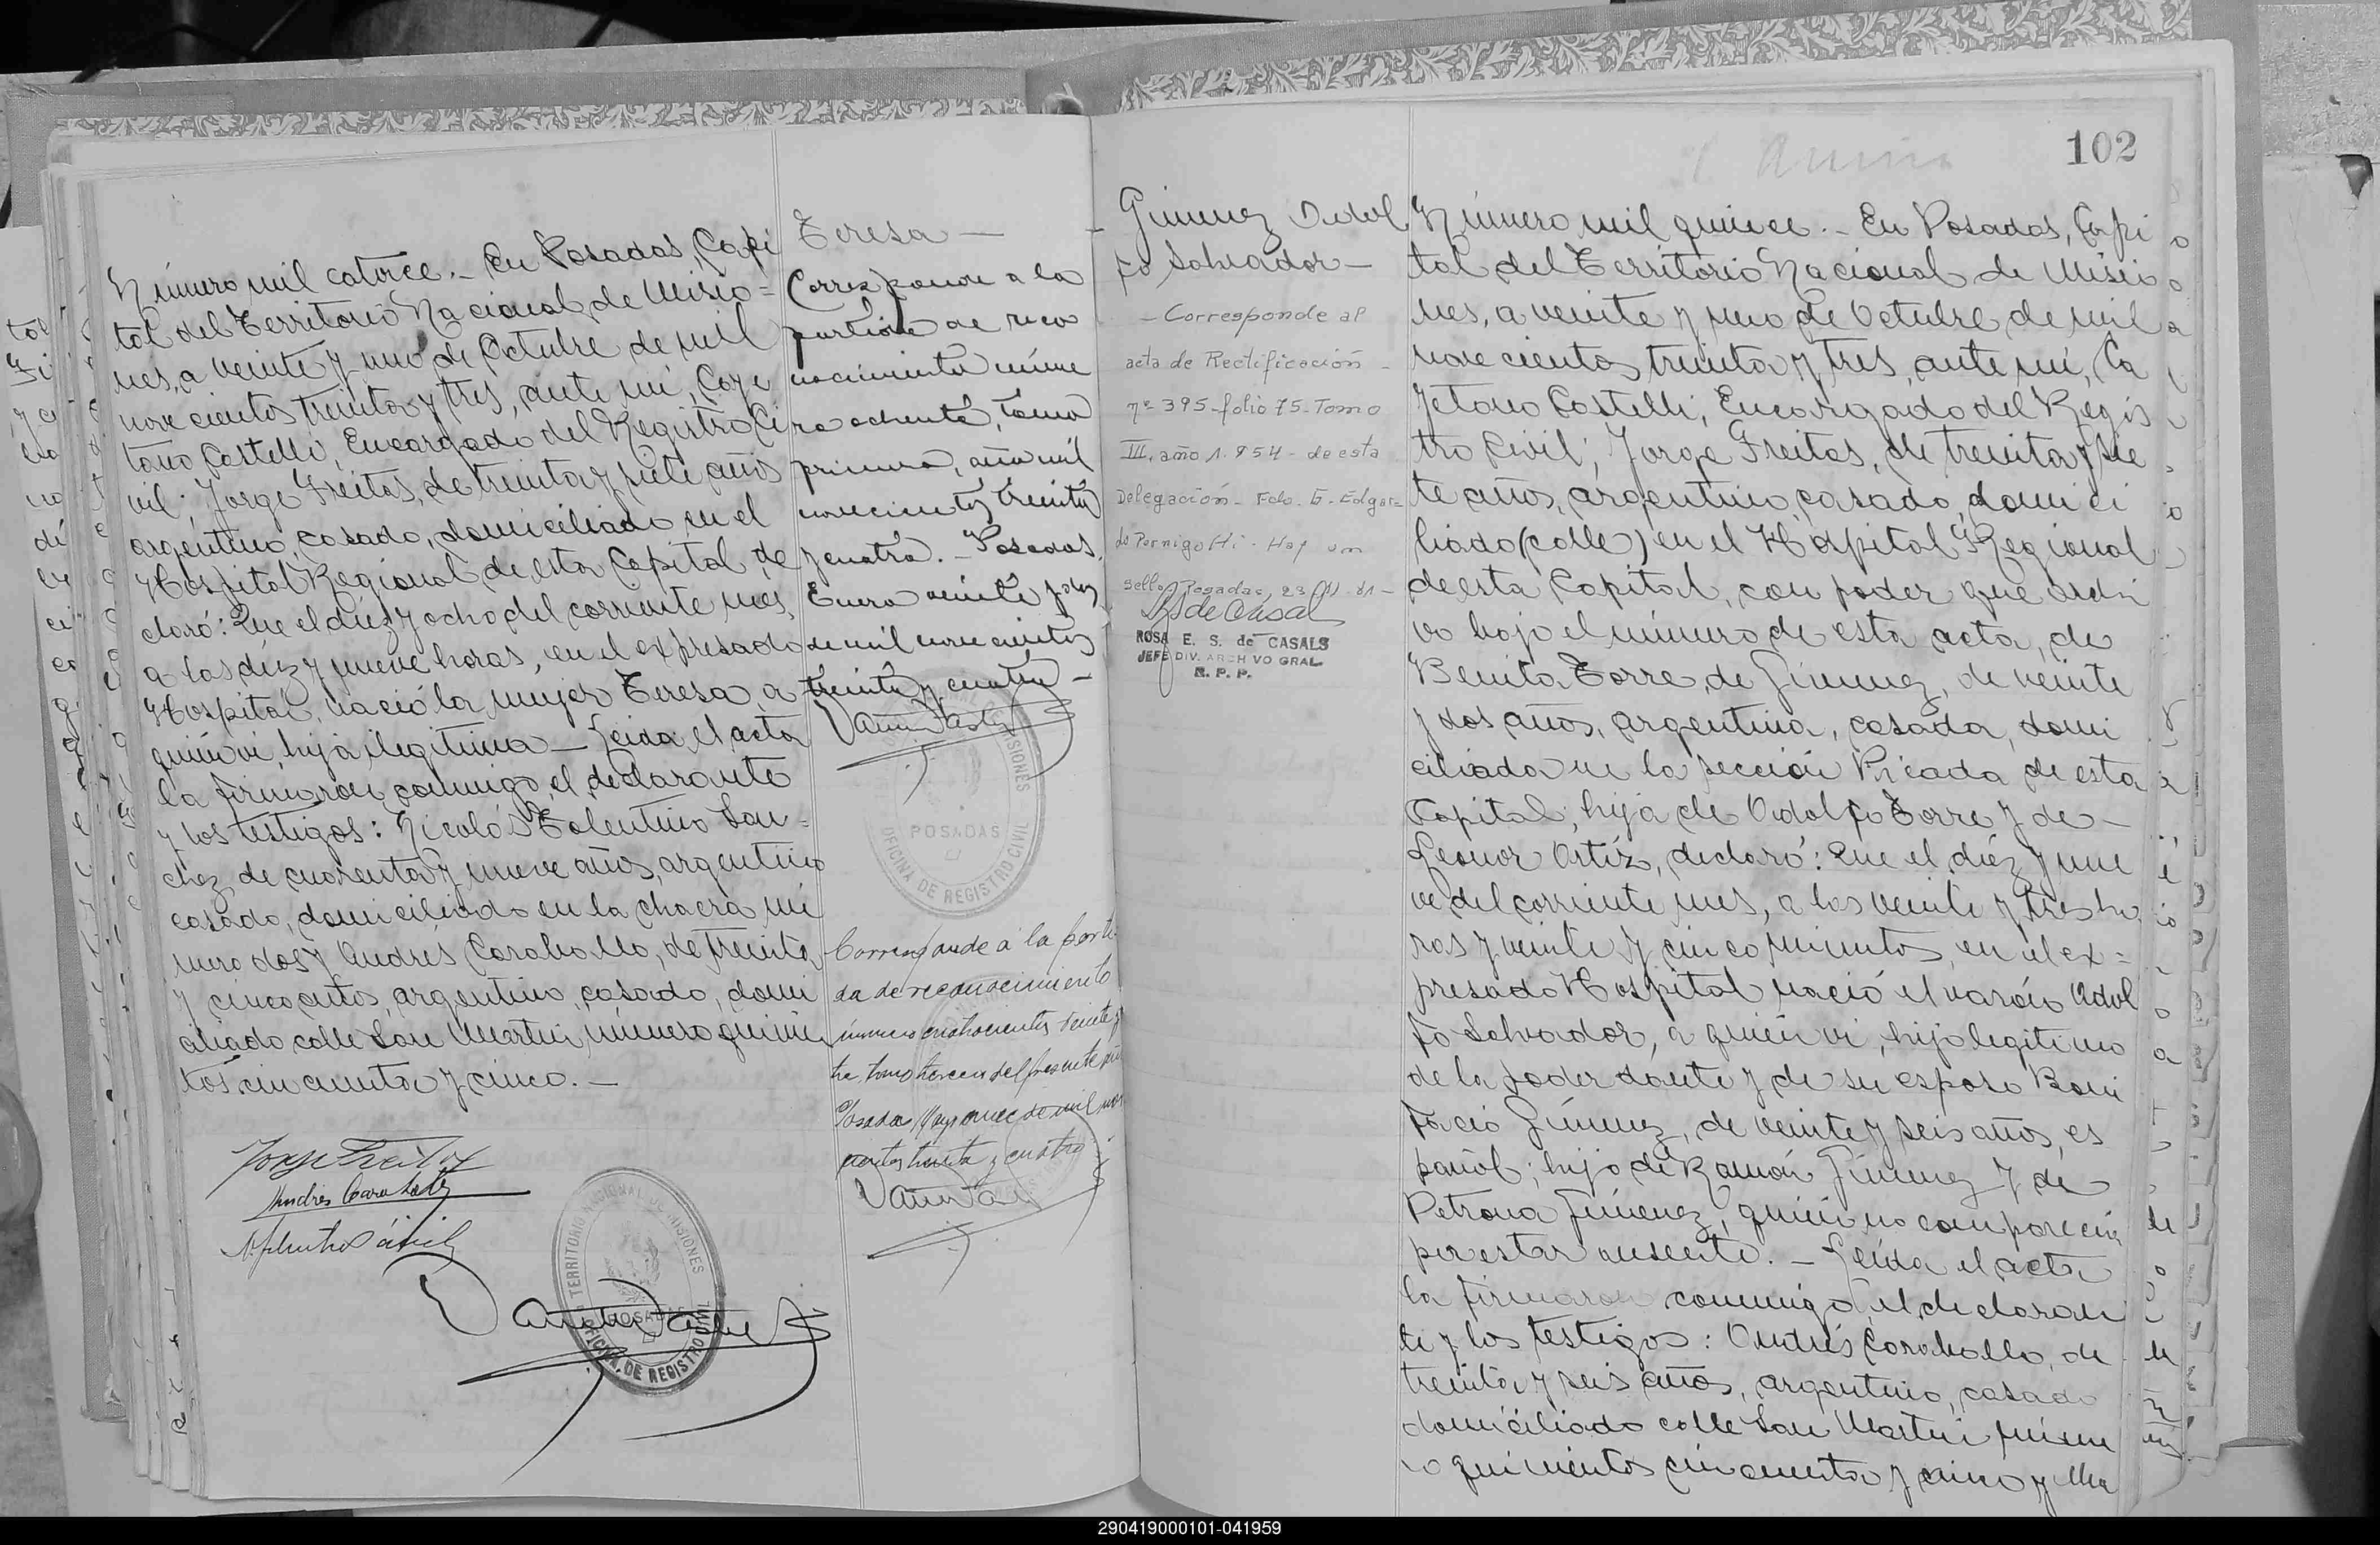 Número mil catorce.- En Posadas, Capi
tal del Territorio Nacional de Misio=
nes, a veinte y uno de Octubre de mil
novecientos treinta y tres, ante mí, Caye
tano Castelli, Encargado del Registro Ci
vil; Jorge Freitas, de treinta y siete años
argentino, casado, domiciliado en el
Hospital Regional de esta Capital, de
claró: Que el diéz y ocho del corriente mes,
a las diéz y nueve horas, en el expresado
Hospital, nació la mujer Teresa, a
quién vi, hija ilegitima - Leida el acta
la firmaron conmigo, el declarante
y los testigos: Nicolás Tolentino San-
chez, de cuarenta y nueve años, argentino
casado, domiciliado en la chacra nú
mero dos y Andrés Caraballo, de treinta
y cinco años, argentino, casado, domi
ciliado calle San Martin, número quinien
tos cincuenta y cinco.-
Teresa -
Corresponde a la
partida de reco
nocimiento núme
ro ochenta, tomo
primero, año mil
novecientos treinta
y cuatro. - Posadas,
Enero veinte y dos
de mil novecientos
treinta y cuatro -
POSADAS
OFICINA DE REGISTRO CIVIL
Corresponde a la parti
da de reconocimiento
número cuatrocientos veinte y
tomo tercero del presente año
Posadas, Mayo once de mil nove
cientos treinta y cuatro
TERRITORIO NACIONAL DE MISIONES
POSADAS
OFICINA DE REGISTRO CIVIL
102
Gimenez Adol
fo Salvador -
- Corresponde al
acta de Rectificación -
nº 395 - folio 75 - Tomo
III, año 1.954 - de esta
Delegación - Fdo. E. Edgar=
do Parnigotti - Hay un
sello. Posadas, 23
ROSA E. S. de CASALS
JEFE DIV. ARCHIVO GRAL.
R. P. P.
Número mil quince.- En Posadas, Capi
tal del Territorio Nacional de Misio
nes, a veinte y uno de Octubre de mil
novecientos treinta y tres, ante mí, Ca
yetano Castelli, Encargado del Regis
tro Civil; Jorge Freitas, de treinta y sie
te años, argentino, casado, domici
liado (calle) en el Hospital Regional
de esta Capital, con poder que archi
vo bajo el número de esta acta, de
Benita Torre de Gimenez, de veinte
y dos años, argentina, casada, domi
ciliada en la sección Picada de esta
Capital, hija de Adolfo Torre y de -
Leonor Ortíz, declaró: Que el diéz y nue
ve del corriente mes, a las veinte y tres ho
ras y veinte y cinco minutos, en el ex=
presado Hospital nació el varón Adol
fo Salvador, a quién vi, hijo legitimo
de la poder dante y de su esposo Boni
facio Gímenez, de veinte y seis años, es
pañol; hijo de Ramón Gímenez y de
Petrona Jimenez, quien no comparecia
por estar ausente. - Leída el acta
la firmaron conmigo, el declaran
te y los testigos: Andrés Caraballo, de
treinta y seis años, argentino, casado
domiciliado calle San Martin núme
ro quinientos cincuenta y cinco y Ma
290419000101-041959